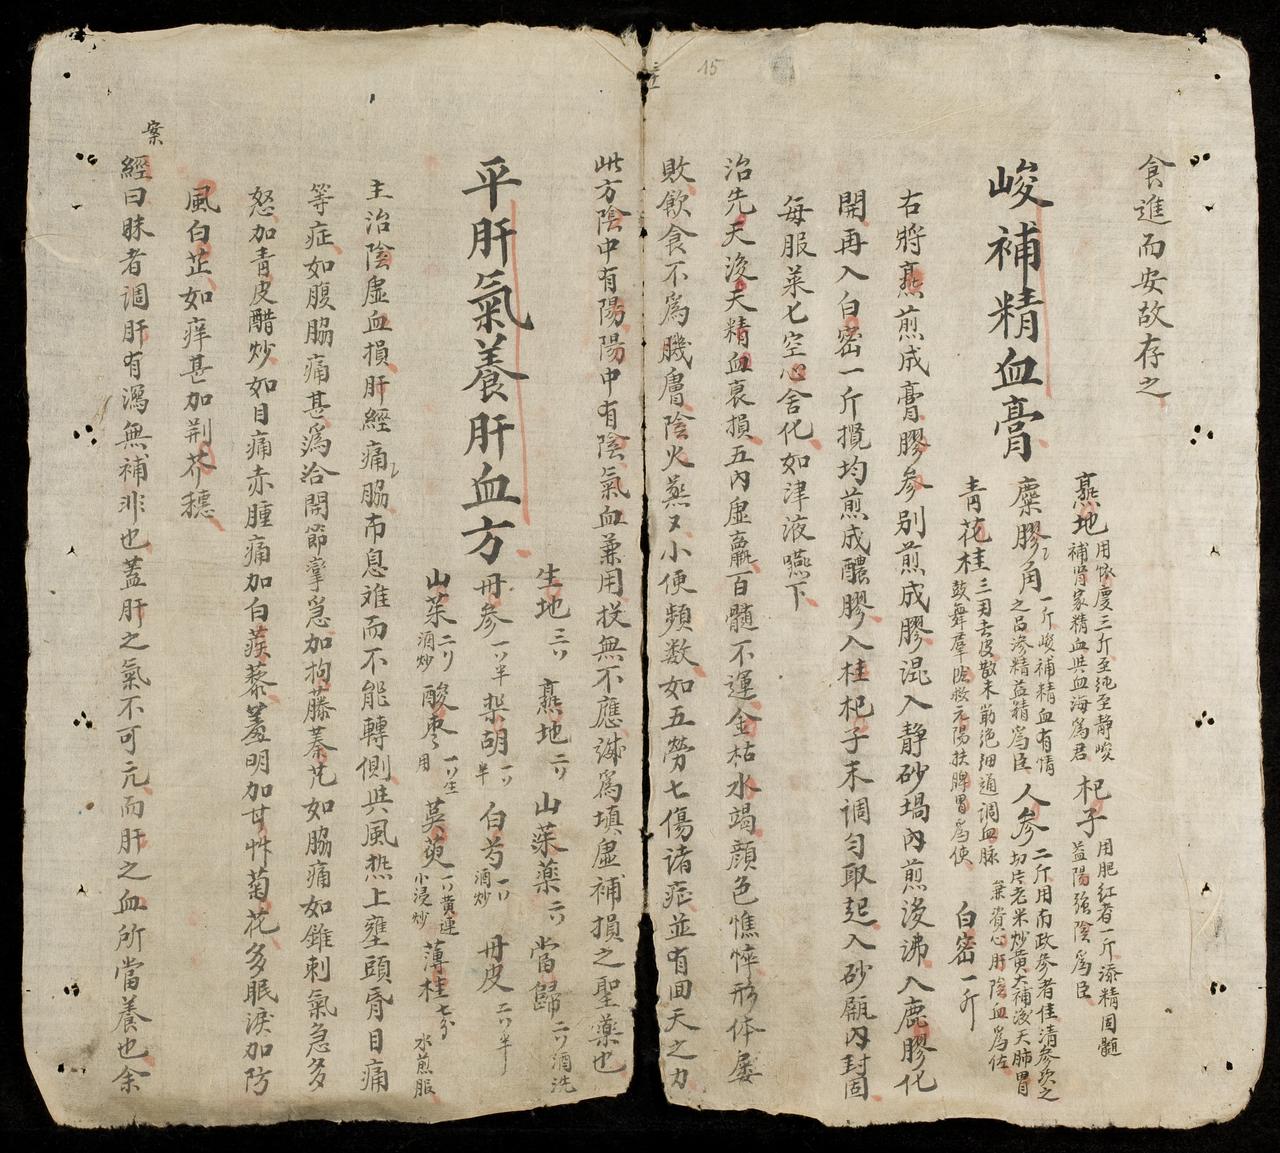 15
食進而安故存之
峻補精血膏
熟地 用懷慶三斤至純至静峻補腎家精血與血海爲君 杞子 用肥紅者一斤添精固髓益陽強陰爲臣
麋膠角 一斤峻補精血有情之品滲精益精爲臣 人參 二斤用南政參者佳清參次之切片老米炒黄大補後天肺胃兼資心肝陰血爲佐
青花桂 三朋去皮散末篩絶细通调血脉鼓舞羣陰妝元陽扶脾胃爲使 白密一斤
右將熟煎成膏膠參别煎成膠混入静砂堝内煎後沸入鹿膠化
開再入白密一斤攪均煎成醲膠入桂杞子末调匀取起入砂甂内封固
每服菜匕空心舍化如津液嚥下
治先天後天精血衰損五内虚羸百髓不運金枯水竭颜色憔悴形体屡
敗飲食不爲肌膚陰火蒸又小便頻数如五劳七傷诸症並有回天之力
此方陰中有陽陽中有陰氣血兼用投無不應誠爲填虚補損之聖藥也
平肝氣養肝血方
生地 三〃 熟地 二〃 山藥藥 六〃 當歸 二〃酒洗
丹參 一〃半 柴胡 一〃半 白芍 一〃酒炒 丹皮 二〃半
山茱 二〃酒炒 酸枣 一〃生用 萸萸 一〃黄連小浸炒 薄桂 七分 水煎服
主治陰虚血損肝經痛脇布息难而不能轉側與風热上壅頭脣目痛
等症如腹脇痛甚爲治関節攣急加拘藤秦艽如脇痛如錐刺氣急多
怒加青皮醋炒如目痛赤腫痛加白蒺藜羞明加甘艸菊花多眠淚加防
風白芷如痒甚加荆芥穗
案
經曰眛者调肝有瀉無補非也蓋肝之氣不可亢而肝之血所當養也余